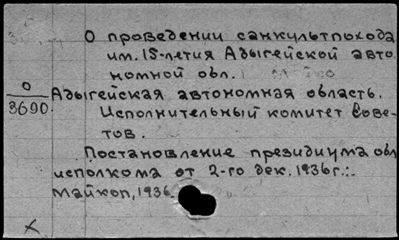 О проведении санкультпохода
им. 15-летия Адыгейской авто
номной обл.
О
3690.
Адыгейская автономная область.
Исполнительный комитет Сове-
тов.
Постановление президиума обл
исполкома от 2-го дек. 1936г.:.
Майкоп, 1936.
X